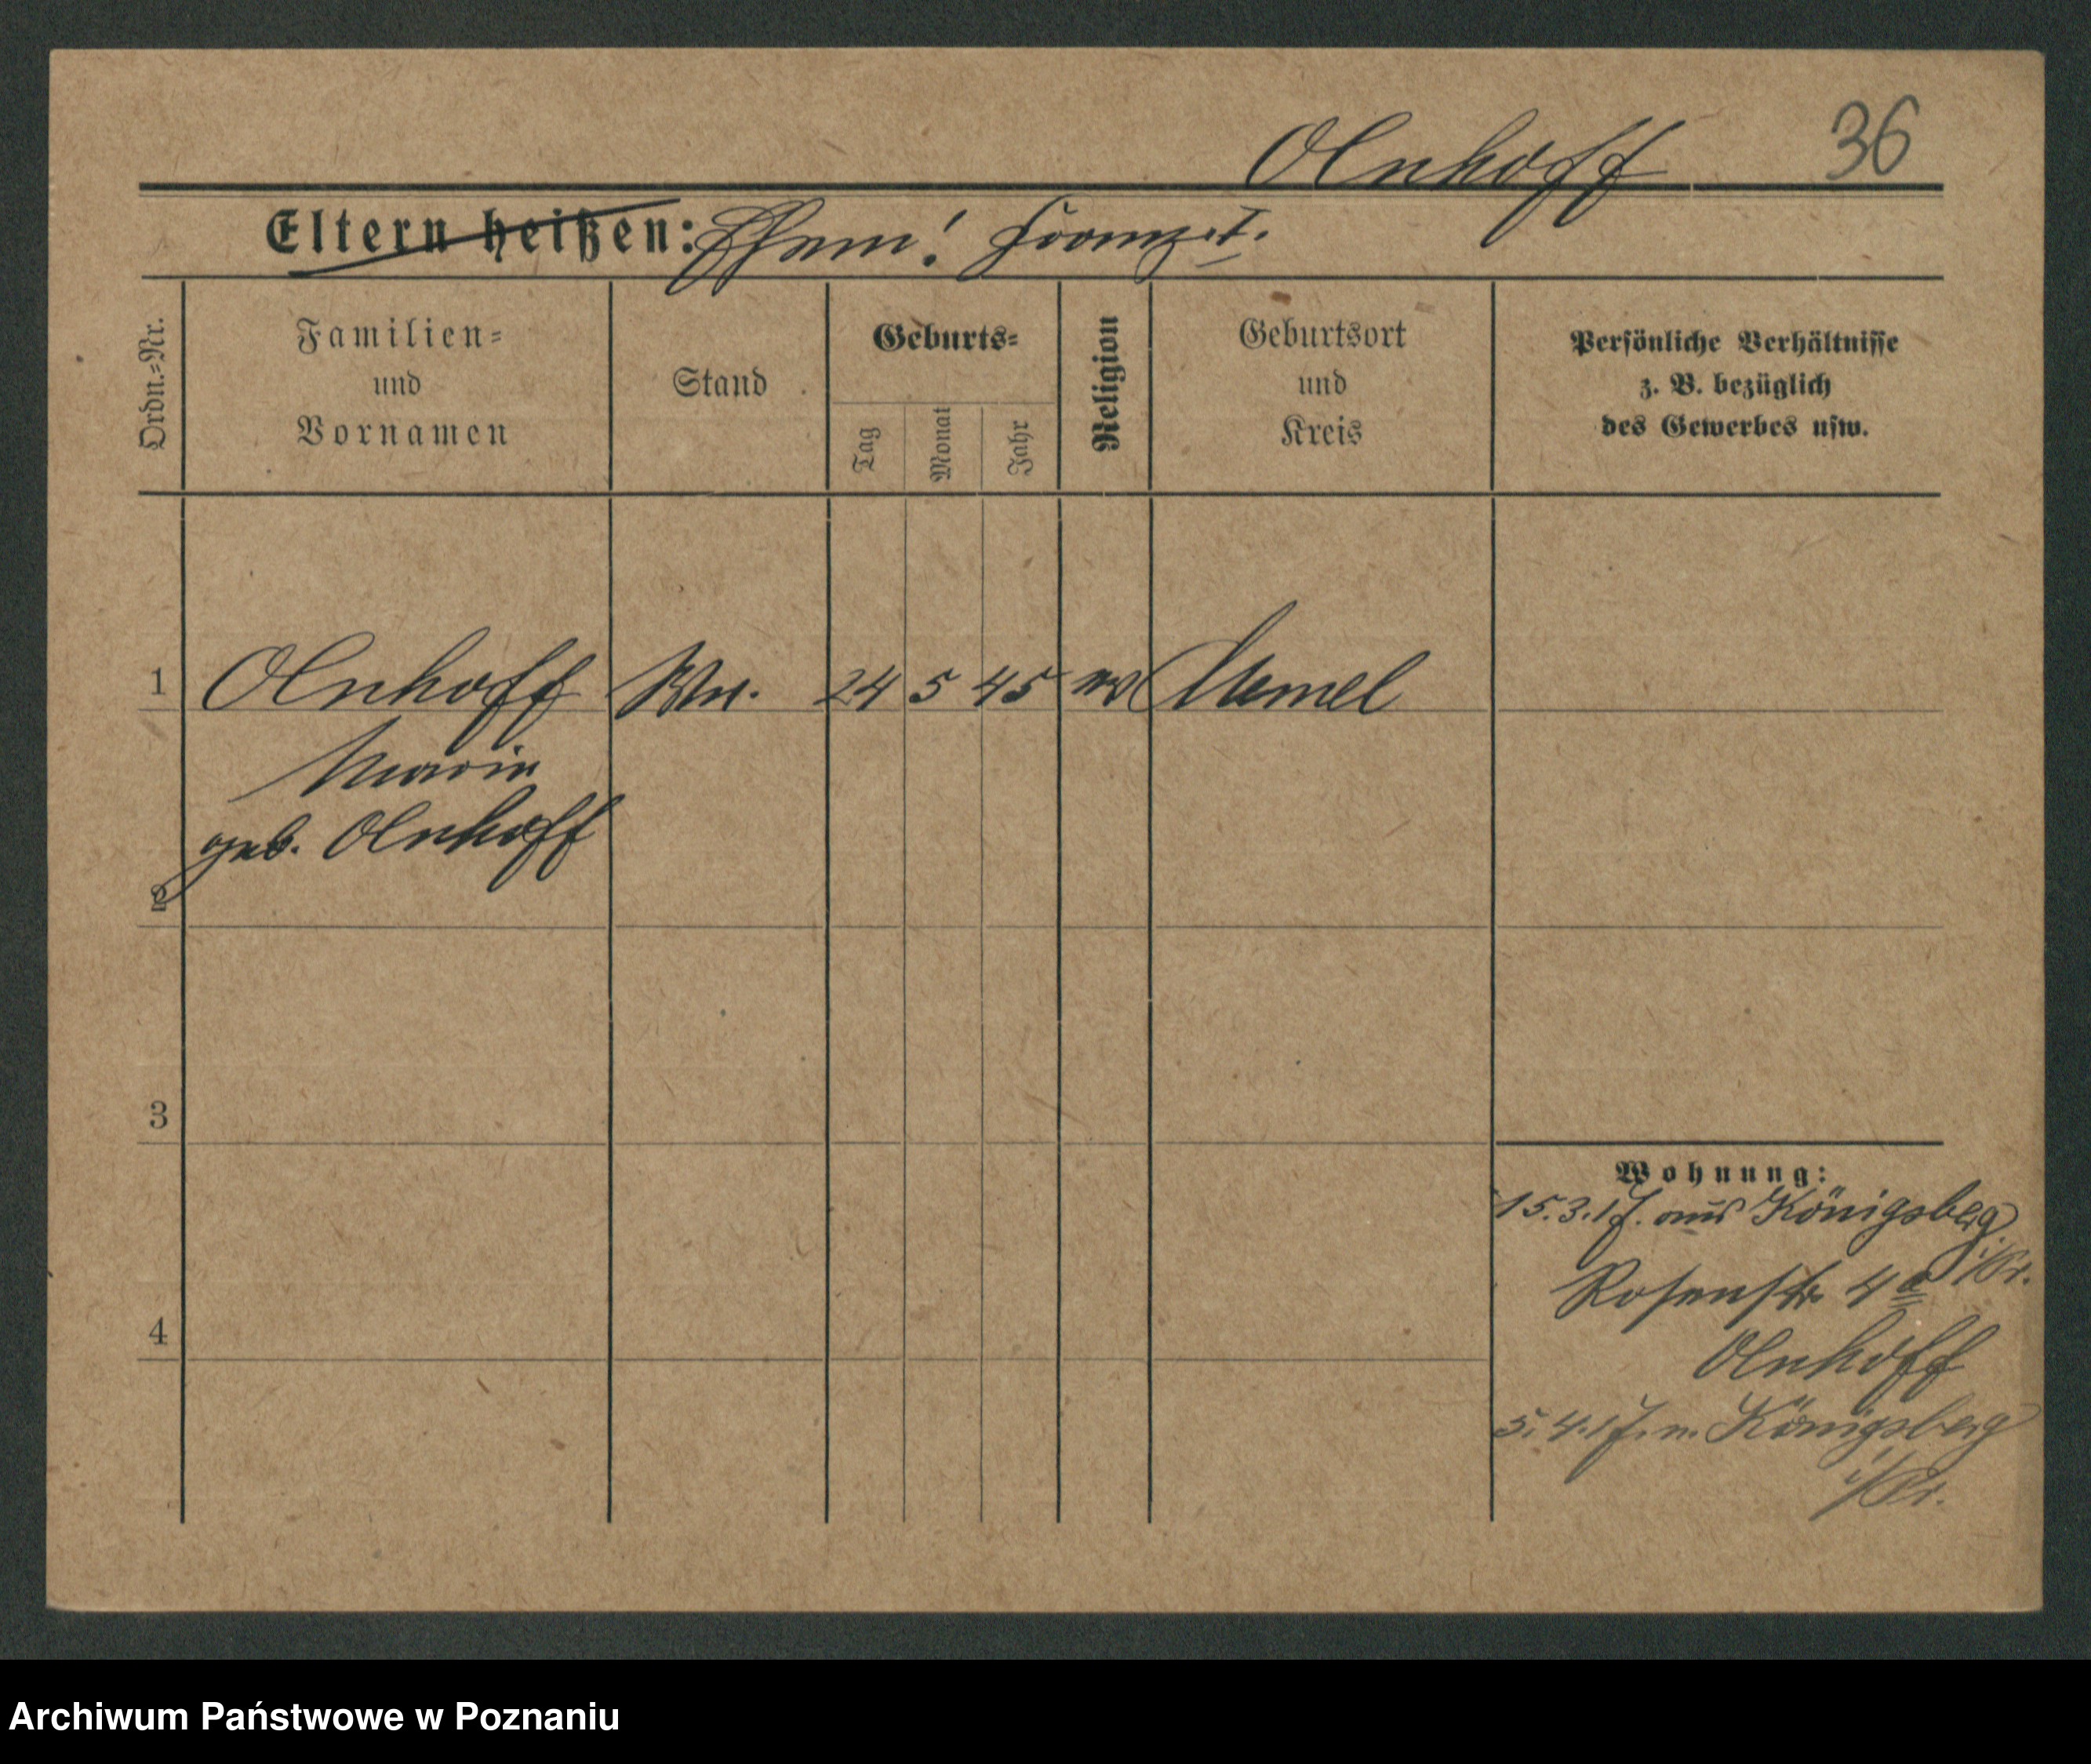 Olnhoff 36
Eltern heißen: Ehem: Franz †.
Ordn.-Nr.
Familien-
und
Vornamen
Stand
Geburts-
Tag
Monat
Jahr
Religion
Geburtsort
und
Kreis
Persönliche Verhältnisse
z. B. bezüglich
des Gewerbes usw.
1 Olnhoff Ww. 24 5 45 ev Memel
Marie
geb. Olnhoff
2
3
4
Wohnung:
15.3.17. aus Königsberg
i/Pr.
Rosenstr 4a
Olnhoff
5.4.17. n. Königsberg
i/Pr.
Archiwum Państwowe w Poznaniu